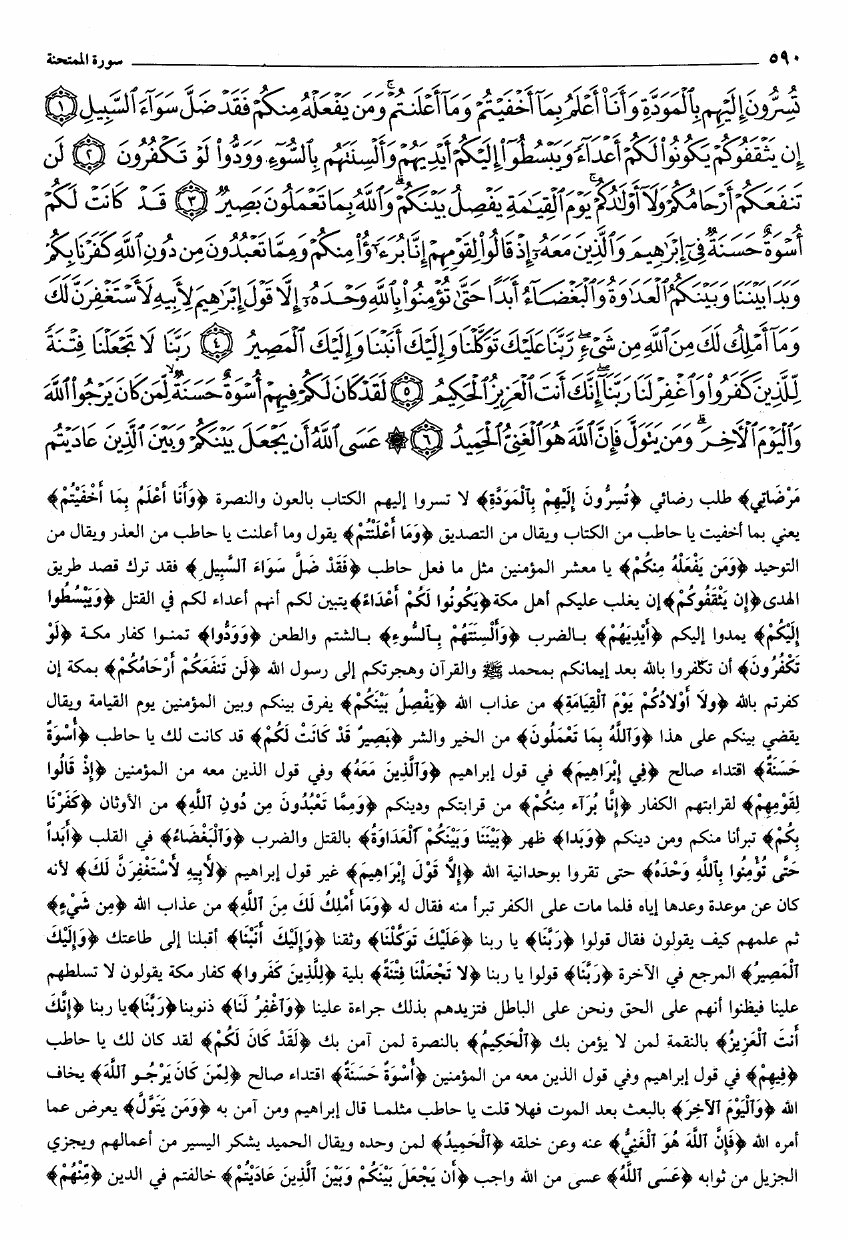 ٥٩٠ سورة الممتحنة
تُسِرُّونَ إِلَيْهِم بِٱلْمَوَدَّةِ وَأَنَا۠ أَعْلَمُ بِمَآ أَخْفَيْتُمْ وَمَآ أَعْلَنتُمْ ۚ وَمَن يَفْعَلْهُ مِنكُمْ فَقَدْ ضَلَّ سَوَآءَ ٱلسَّبِيلِ ۝١
إِن يَثْقَفُوكُمْ يَكُونُوا۟ لَكُمْ أَعْدَآءً وَيَبْسُطُوٓا۟ إِلَيْكُمْ أَيْدِيَهُمْ وَأَلْسِنَتَهُم بِٱلسُّوٓءِ وَوَدُّوا۟ لَوْ تَكْفُرُونَ ۝٢ لَن
تَنفَعَكُمْ أَرْحَامُكُمْ وَلَآ أَوْلَٰدُكُمْ ۚ يَوْمَ ٱلْقِيَٰمَةِ يَفْصِلُ بَيْنَكُمْ ۚ وَٱللَّهُ بِمَا تَعْمَلُونَ بَصِيرٌ ۝٣ قَدْ كَانَتْ لَكُمْ
أُسْوَةٌ حَسَنَةٌ فِىٓ إِبْرَٰهِيمَ وَٱلَّذِينَ مَعَهُۥٓ إِذْ قَالُوا۟ لِقَوْمِهِمْ إِنَّا بُرَءَٰٓؤُا۟ مِنكُمْ وَمِمَّا تَعْبُدُونَ مِن دُونِ ٱللَّهِ كَفَرْنَا بِكُمْ
وَبَدَا بَيْنَنَا وَبَيْنَكُمُ ٱلْعَدَٰوَةُ وَٱلْبَغْضَآءُ أَبَدًا حَتَّىٰ تُؤْمِنُوا۟ بِٱللَّهِ وَحْدَهُۥٓ إِلَّا قَوْلَ إِبْرَٰهِيمَ لِأَبِيهِ لَأَسْتَغْفِرَنَّ لَكَ
وَمَآ أَمْلِكُ لَكَ مِنَ ٱللَّهِ مِن شَىْءٍ ۖ رَّبَّنَا عَلَيْكَ تَوَكَّلْنَا وَإِلَيْكَ أَنَبْنَا وَإِلَيْكَ ٱلْمَصِيرُ ۝٤ رَبَّنَا لَا تَجْعَلْنَا فِتْنَةً
لِّلَّذِينَ كَفَرُوا۟ وَٱغْفِرْ لَنَا رَبَّنَآ ۖ إِنَّكَ أَنتَ ٱلْعَزِيزُ ٱلْحَكِيمُ ۝٥ لَقَدْ كَانَ لَكُمْ فِيهِمْ أُسْوَةٌ حَسَنَةٌ لِّمَن كَانَ يَرْجُوا۟ ٱللَّهَ
وَٱلْيَوْمَ ٱلْءَاخِرَ ۚ وَمَن يَتَوَلَّ فَإِنَّ ٱللَّهَ هُوَ ٱلْغَنِىُّ ٱلْحَمِيدُ ۝٦ ۞ عَسَى ٱللَّهُ أَن يَجْعَلَ بَيْنَكُمْ وَبَيْنَ ٱلَّذِينَ عَادَيْتُم
مَرْضَاتِي﴾ طلب رضائي ﴿تُسِرُّونَ إِلَيْهِمْ بِٱلْمَوَدَّةِ﴾ لا تسروا إليهم الكتاب بالعون والنصرة ﴿وَأَنَا أَعْلَمُ بِمَا أَخْفَيْتُمْ﴾
يعني بما أخفيت يا حاطب من الكتاب ويقال من التصديق ﴿وَمَا أَعْلَنْتُمْ﴾ يقول وما أعلنت يا حاطب من العذر ويقال من
التوحيد ﴿وَمَن يَفْعَلْهُ مِنكُمْ﴾ يا معشر المؤمنين مثل ما فعل حاطب ﴿فَقَدْ ضَلَّ سَوَاءَ ٱلسَّبِيلِ﴾ فقد ترك قصد طريق
الهدى ﴿إِن يَثْقَفُوكُمْ﴾ إن يغلب عليكم أهل مكة ﴿يَكُونُوا لَكُمْ أَعْدَاءً﴾ يتبين لكم أنهم أعداء لكم في القتل ﴿وَيَبْسُطُوا
إِلَيْكُمْ﴾ يمدوا إليكم ﴿أَيْدِيَهُمْ﴾ بالضرب ﴿وَأَلْسِنَتَهُمْ بِٱلسُّوءِ﴾ بالشتم والطعن ﴿وَوَدُّوا﴾ تمنوا كفار مكة ﴿لَوْ
تَكْفُرُونَ﴾ أن تكفروا بالله بعد إيمانكم بمحمد ﷺ والقرآن وهجرتكم إلى رسول الله ﴿لَن تَنفَعَكُمْ أَرْحَامُكُمْ﴾ بمكة إن
كفرتم بالله ﴿ولَا أَوْلادُكُمْ يَوْمَ ٱلْقِيَامَةِ﴾ من عذاب الله ﴿يَفْصِلُ بَيْنَكُمْ﴾ يفرق بينكم وبين المؤمنين يوم القيامة ويقال
يقضي بينكم على هذا ﴿وَٱللَّهُ بِمَا تَعْمَلُونَ﴾ من الخير والشر ﴿بَصِيرٌ قَدْ كَانَتْ لَكُمْ﴾ قد كانت لك يا حاطب ﴿أُسْوَةٌ
حَسَنَةٌ﴾ اقتداء صالح ﴿فِي إِبْرَاهِيمَ﴾ في قول إبراهيم ﴿وَٱلَّذِينَ مَعَهُ﴾ وفي قول الذين معه من المؤمنين ﴿إِذْ قَالُوا
لِقَوْمِهِمْ﴾ لقرابتهم الكفار ﴿إِنَّا بُرَآء مِنكُمْ﴾ من قرابتكم ودينكم ﴿وَمِمَّا تَعْبُدُونَ مِن دُونِ ٱللَّهِ﴾ من الأوثان ﴿كَفَرْنَا
بِكُمْ﴾ تبرأنا منكم ومن دينكم ﴿وَبَدا﴾ ظهر ﴿بَيْنَنَا وَبَيْنَكُمُ ٱلْعَدَاوَةُ﴾ بالقتل والضرب ﴿وَٱلْبَغْضَاءُ﴾ في القلب ﴿أَبَداً
حَتَّى تُؤْمِنُوا بِٱللَّهِ وَحْدَهُ﴾ حتى تقروا بوحدانية الله ﴿إِلَّا قَوْلَ إِبْرَاهِيمَ﴾ غير قول إبراهيم ﴿لأَبِيهِ لأَسْتَغْفِرَنَّ لَكَ﴾ لأنه
كان عن موعدة وعدها إياه فلما مات على الكفر تبرأ منه فقال له ﴿وَمَا أَمْلِكُ لَكَ مِنَ ٱللَّهِ﴾ من عذاب الله ﴿مِن شَيْءٍ﴾
ثم علمهم كيف يقولون فقال قولوا ﴿رَبَّنَا﴾ يا ربنا ﴿عَلَيْكَ تَوَكَّلْنَا﴾ وثقنا ﴿وَإِلَيْكَ أَنَبْنَا﴾ أقبلنا إلى طاعتك ﴿وَإِلَيْكَ
ٱلْمَصِيرُ﴾ المرجع في الآخرة ﴿رَبَّنَا﴾ قولوا يا ربنا ﴿لا تَجْعَلْنَا فِتْنَةً﴾ بلية ﴿لِلَّذِينَ كَفَروا﴾ كفار مكة يقولون لا تسلطهم
علينا فيظنوا أنهم على الحق ونحن على الباطل فتزيدهم بذلك جراءة علينا ﴿وَٱغْفِرْ لَنَا﴾ ذنوبنا ﴿رَبَّنَا﴾ يا ربنا ﴿إِنَّكَ
أَنتَ ٱلْعَزِيزُ﴾ بالنقمة لمن لا يؤمن بك ﴿ٱلْحَكِيمُ﴾ بالنصرة لمن آمن بك ﴿لَقَدْ كَانَ لَكُمْ﴾ لقد كان لك يا حاطب
﴿فِيهِمْ﴾ في قول إبراهيم وفي قول الذين معه من المؤمنين ﴿أُسْوَةٌ حَسَنَةٌ﴾ اقتداء صالح ﴿لِمَن كَانَ يَرْجُو ٱللَّهَ﴾ يخاف
الله ﴿وَٱلْيَوْمَ ٱلآخِرَ﴾ بالبعث بعد الموت فهلا قلت يا حاطب مثلما قال إبراهيم ومن آمن به ﴿وَمَن يَتَوَلَّ﴾ يعرض عما
أمره الله ﴿فَإِنَّ ٱللَّهَ هُوَ ٱلْغَنِيُّ﴾ عنه وعن خلقه ﴿ٱلْحَمِيدُ﴾ لمن وحده ويقال الحميد يشكر اليسير من أعمالهم ويجزي
الجزيل من ثوابه ﴿عَسَى ٱللَّهُ﴾ عسى من الله واجب ﴿أَن يَجْعَلَ بَيْنَكُمْ وَبَيْنَ ٱلَّذِينَ عَادَيْتُمْ﴾ خالفتم في الدين ﴿مِّنْهُمْ﴾